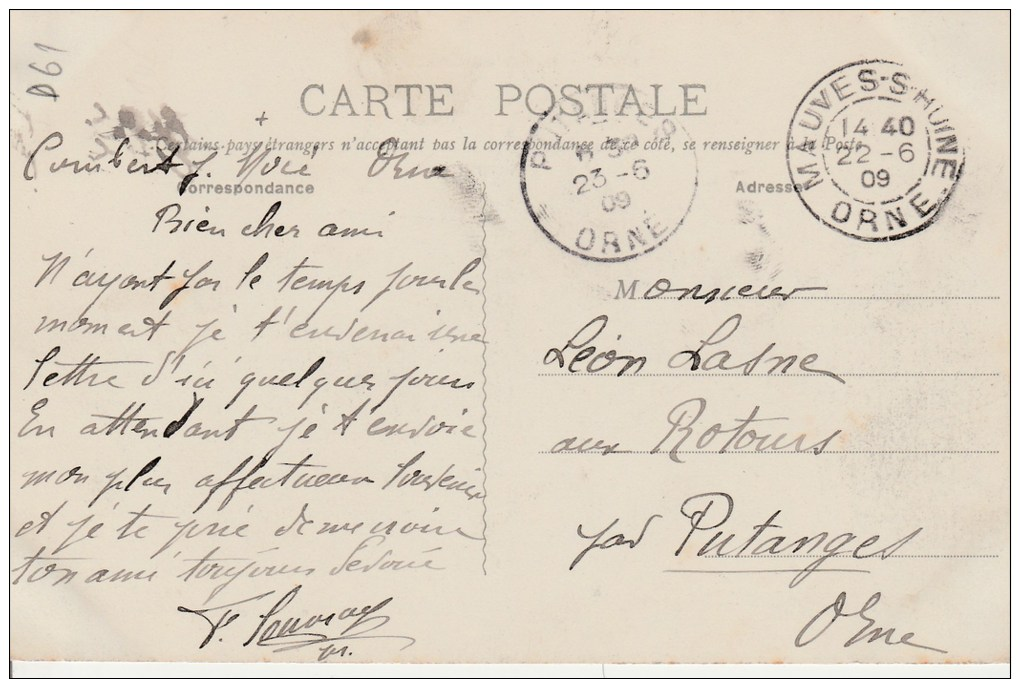 D61
CARTE POSTALE
Certains pays étrangers n'acceptant pas la correspondance de ce côté, se renseigner à la Poste
Correspondance
Adresse
MAUVES-S-HUINE
14 40
22-6
09
ORNE
23-6
09
ORNE
Orne
Bien cher ami
N'ayant pas le temps pour le
moment je t'enverrai une
lettre d'ici quelques jours
En attendant je t'envoie
mon plus affectueux souvenir
et je te prie de me croire
ton ami toujours dévoué
Monsieur
Léon Lasne
aux Rotours
par Putanges
Orne